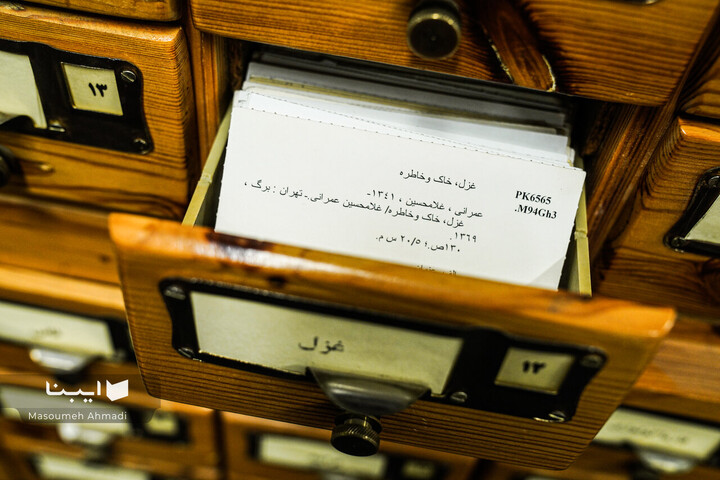 ۱۳
غزل، خاک وخاطره
PK6565
.M94Gh3
عمرانی ، غلامحسین ، ۱۳۴۱-
غزل، خاک وخاطره/ غلامحسین عمرانی.ـ تهران : برگ ،
۱۳۶۹.
۱۳۰ص.؛ ۲۰/۵ س م.
غزل
۱۳
ایبنا
Masoumeh Ahmadi